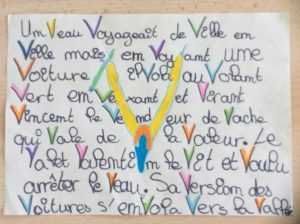 Un Veau Voyageait de Ville en
Ville mais en Voyant une
Voiture il Vola au Volant
Vert en Vexant et Virant
Vincent le Vendeur de Vache
qui Vale de la Valeur. Le
Valet l'attention le Vit et Voulu
arrêter le Veau. Sa Version des
Voitures s'envola Vers la Vallée